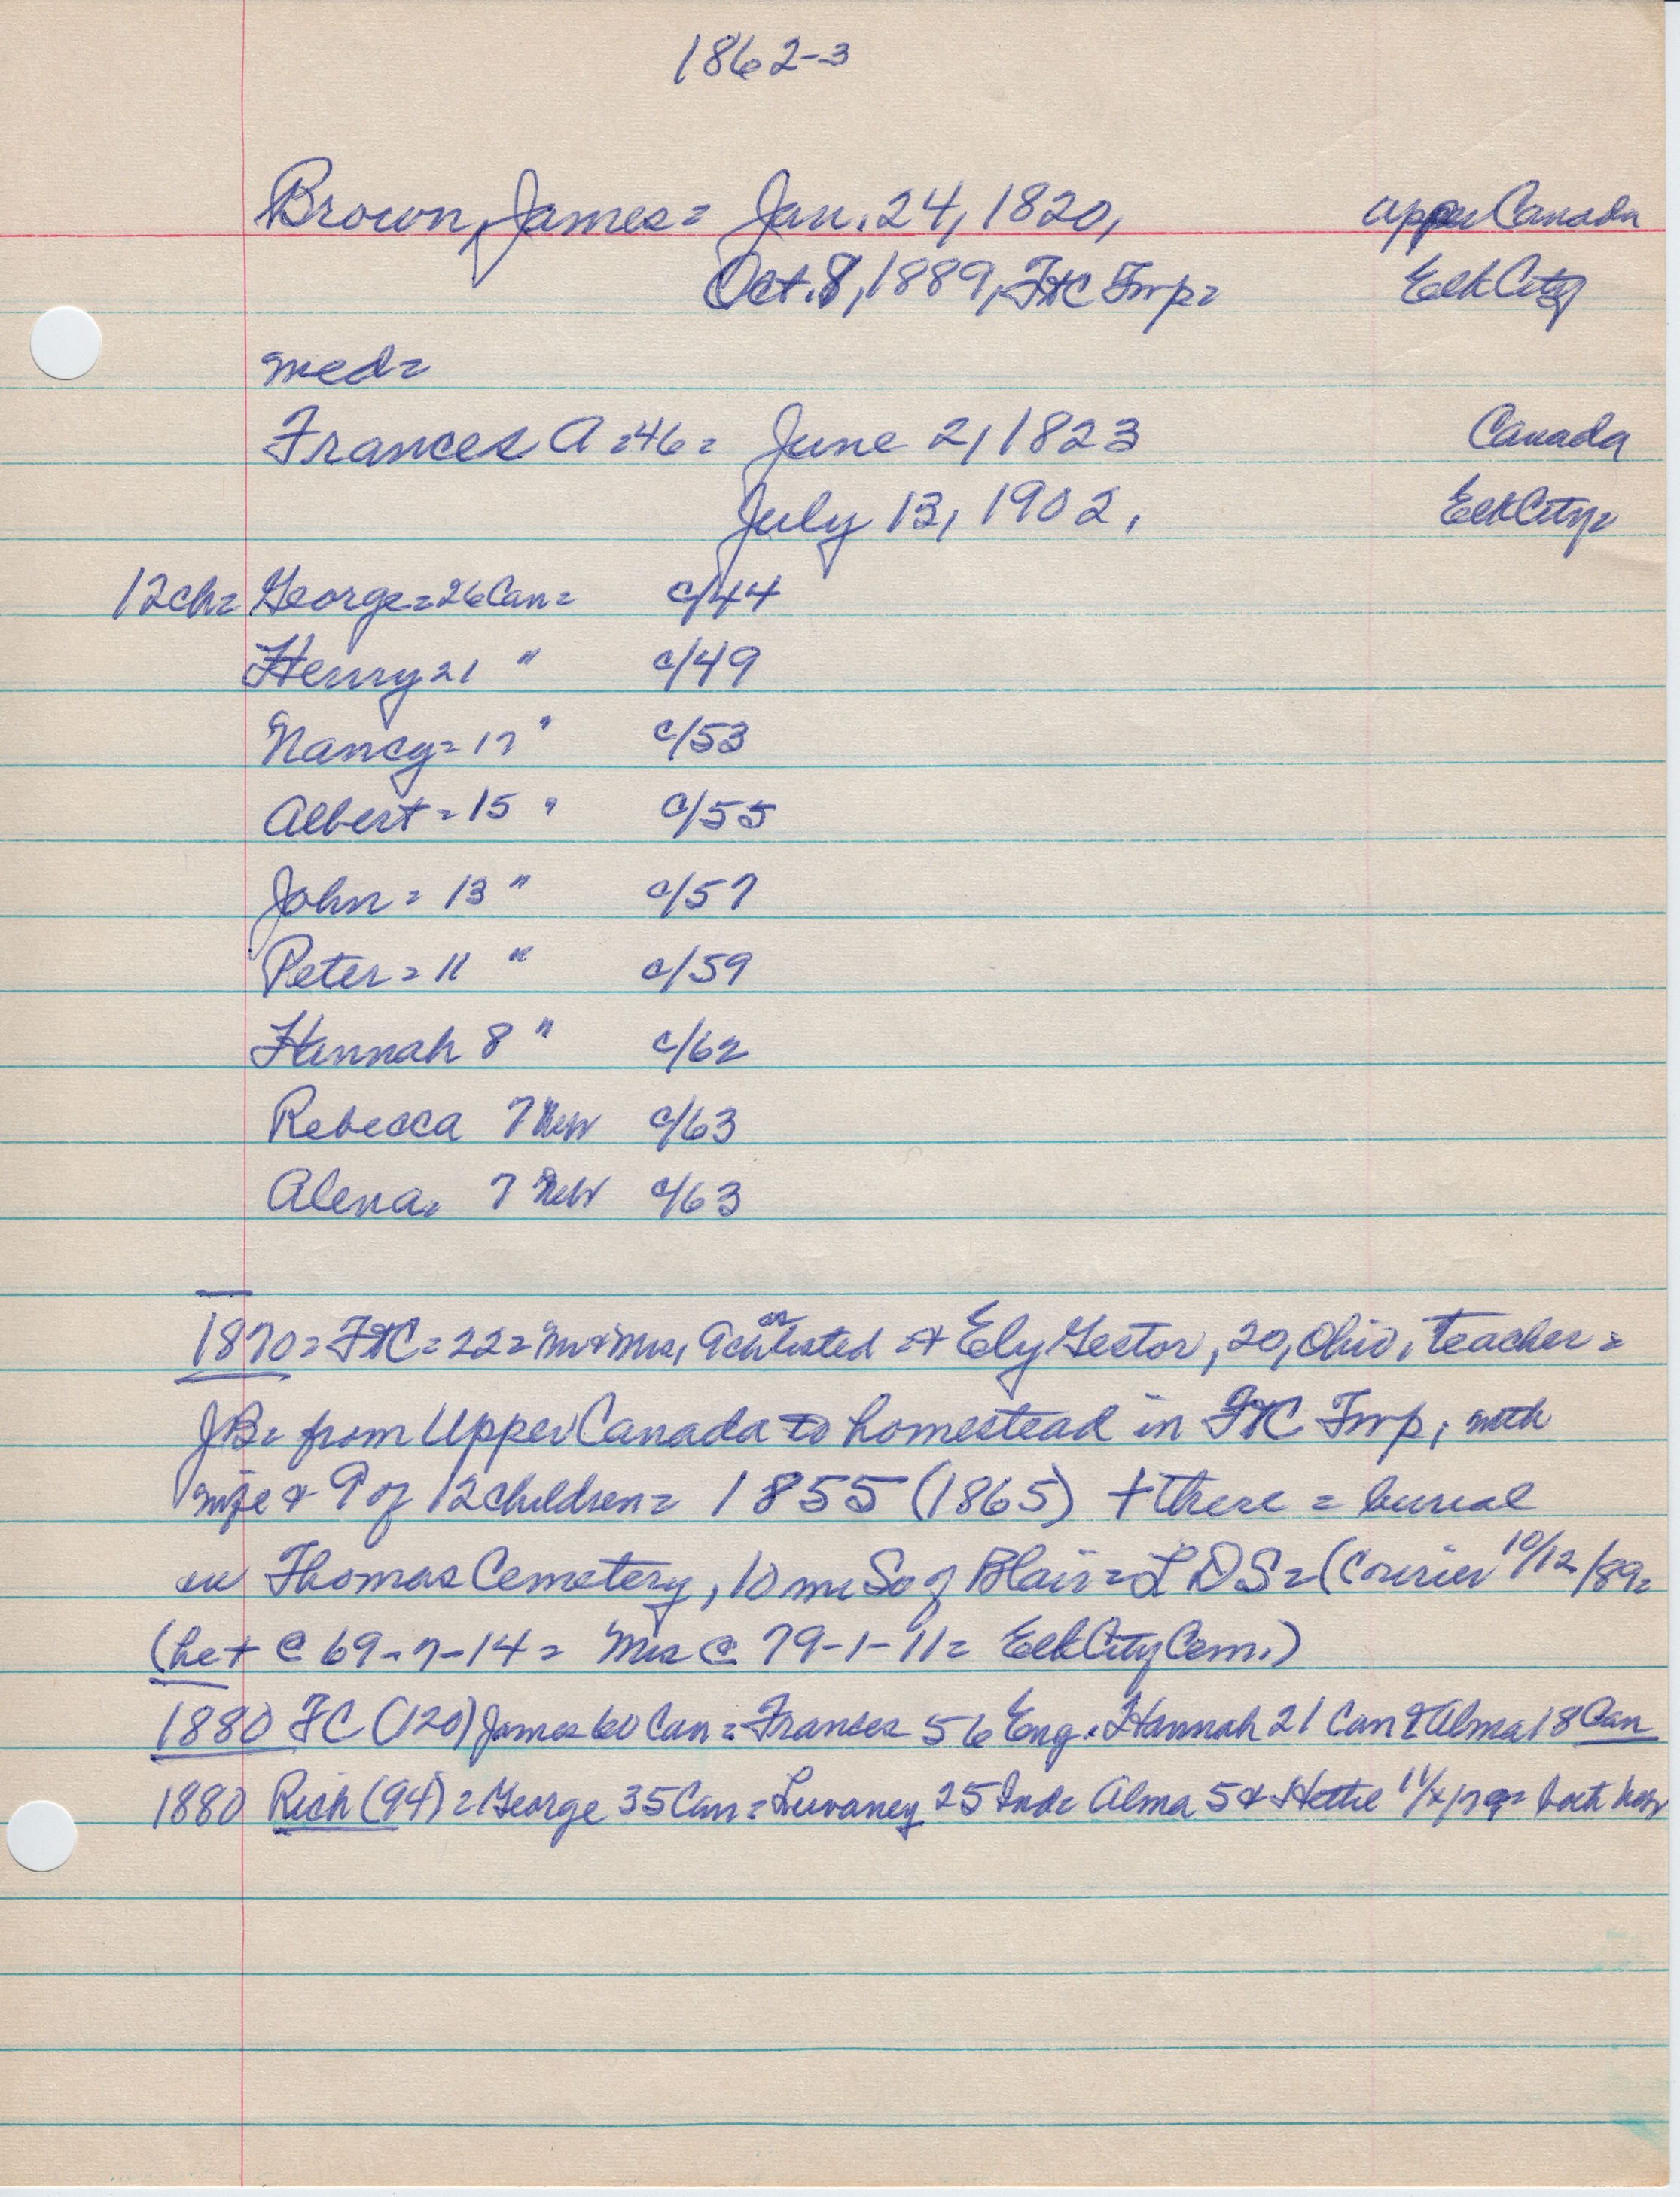 1862-3
Brown, James= Jan. 24, 1820, Upper Canada
Oct. 8, 1889, FtC Twp= Elk City
med=
Frances A=46= June 2, 1823 Canada
July 13, 1902, Elk City=
12ch= George=26 Can= c/44
Henry 21 " c/49
Nancy= 17 " c/53
Albert= 15 " c/55
John= 13 " c/57
Peter= 11 " c/59
Hannah 8 " c/62
Rebecca 7 Neb c/63
Alena= 7 Neb c/63
1870= FtC= 22= Mr & Mrs, 9 ch as listed + Ely Gestor, 20, Ohio, teacher=
JB= from Upper Canada to homestead in FtC Twp, with
wife & 9 of 12 children= 1855 (1865) + there = burial
in Thomas Cemetery, 10 mi So of Blair= LDS= (Courier 10/12/89=
(he + @ 69-7-14= Mrs @ 79-1-11= Elk City Cem.)
1880 FC (120) James 60 Can= Frances 56 Eng. Hannah 21 Can & Alma 18 Can
1880 Rich (94)= George 35 Can= Luvaney 25 Ind= Alma 5 & Hettie both Neb